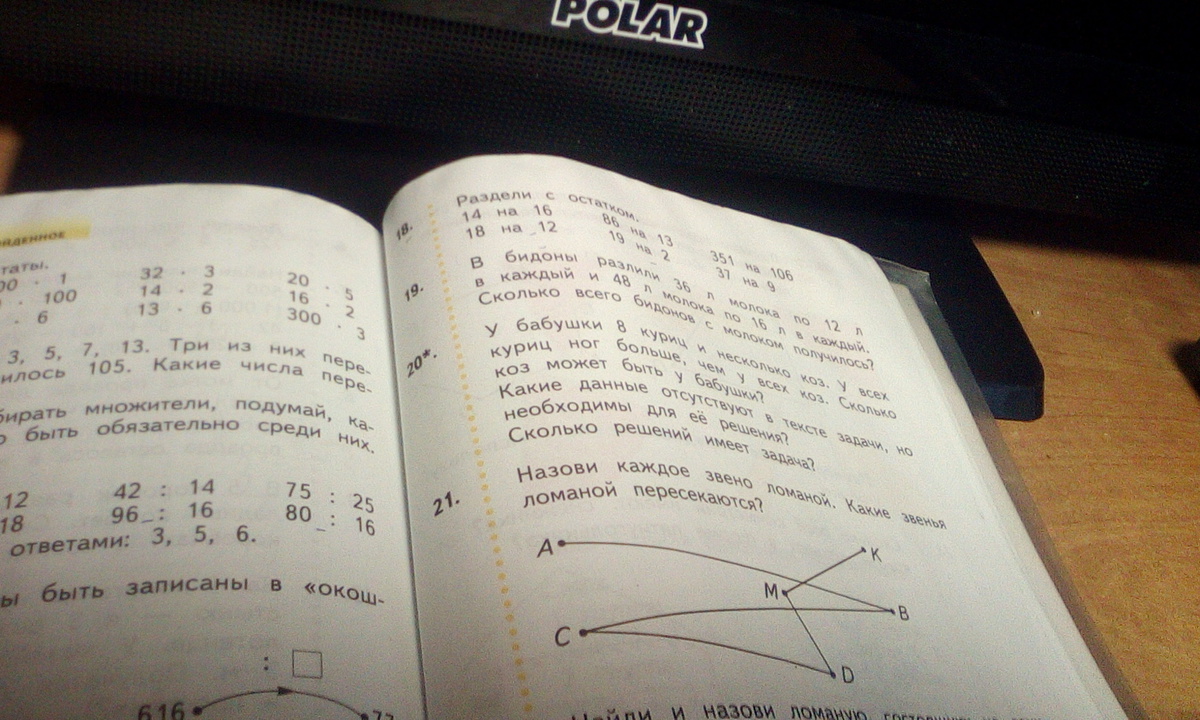 POLAR
ЙДЕННОЕ
таты.
00 · 1 32 · 3 20 · 5
· 100 14 · 2 16 · 2
· 6 13 · 6 300 · 3
3, 5, 7, 13. Три из них пере-
илось 105. Какие числа пере-
бирать множители, подумай, ка-
о быть обязательно среди них.
12 42 : 14 75 : 25
18 96 : 16 80 : 16
ответами: 3, 5, 6.
ы быть записаны в «окош-
:
616 77
18. Раздели с остатком.
14 на 16 86 на 13 351 на 106
18 на 12 19 на 2 37 на 9
19. В бидоны разлили 36 л молока по 12 л
в каждый и 48 л молока по 16 л в каждый.
Сколько всего бидонов с молоком получилось?
20*. У бабушки 8 куриц и несколько коз. У всех
куриц ног больше, чем у всех коз. Сколько
коз может быть у бабушки?
Какие данные отсутствуют в тексте задачи, но
необходимы для её решения?
Сколько решений имеет задача?
21. Назови каждое звено ломаной. Какие звенья
ломаной пересекаются?
A
K
M
B
C
D
Найди и назови ломаную,